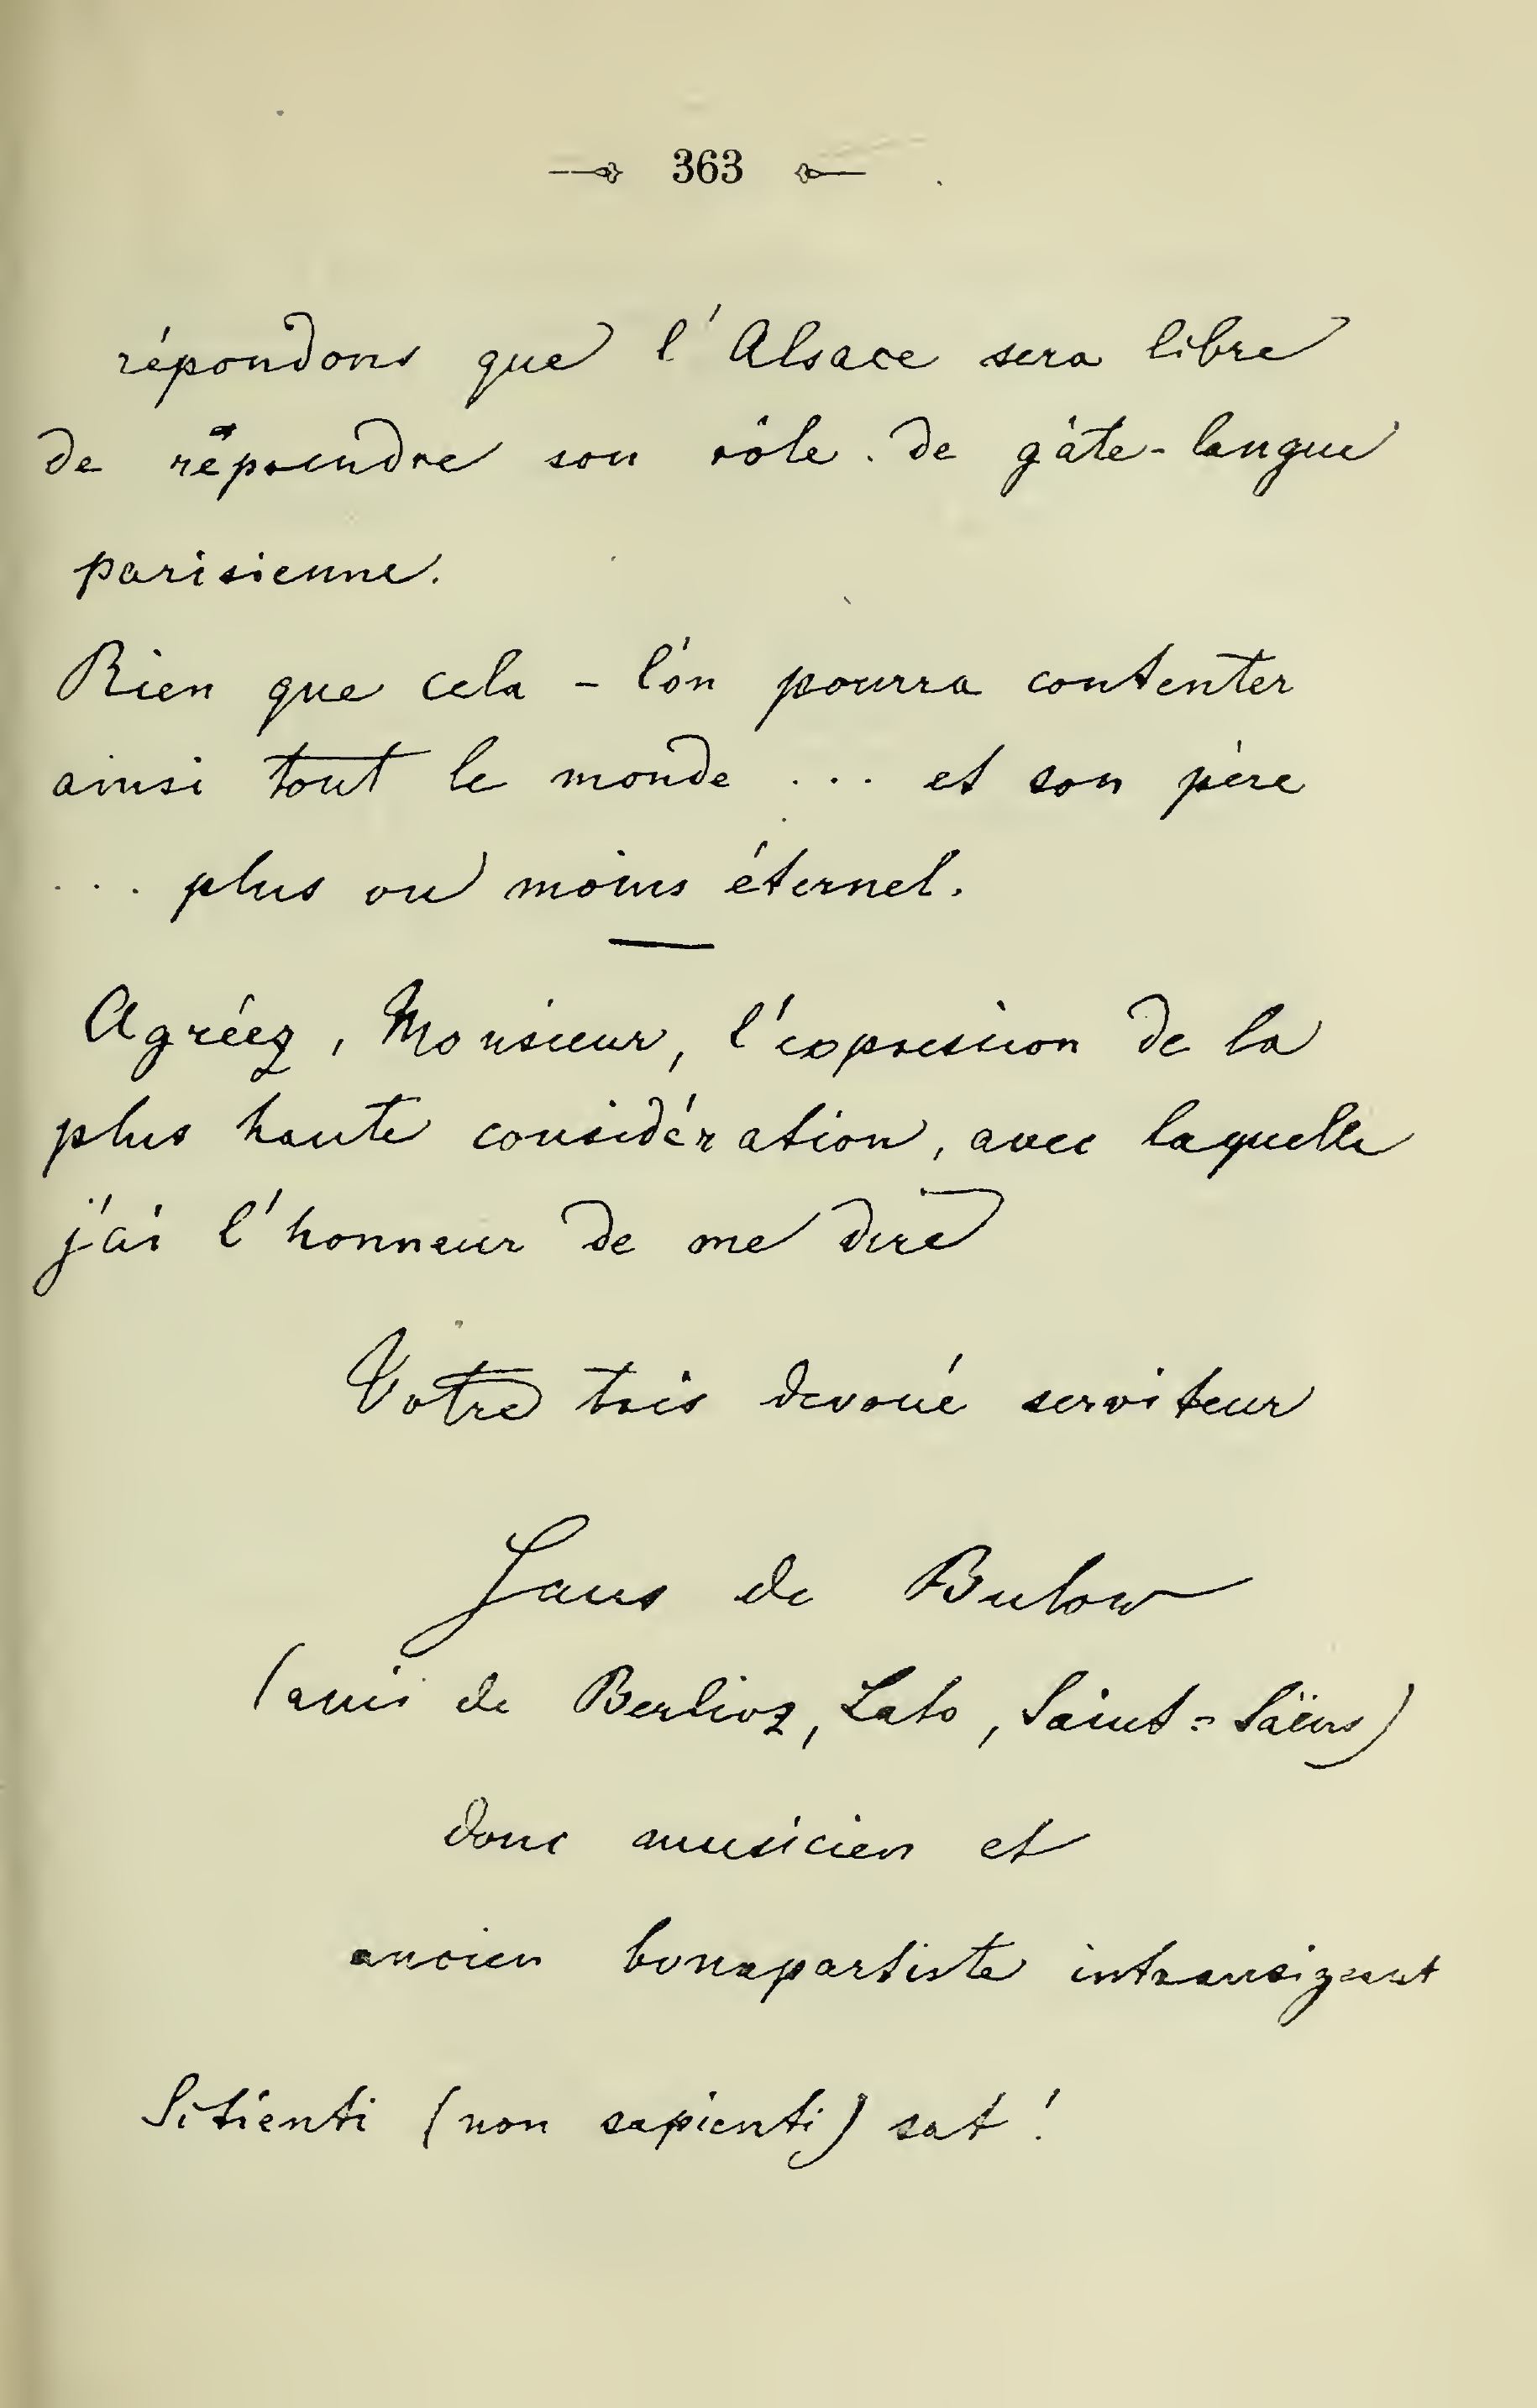 363
répondons que l'Alsace sera libre
de reprendre son rôle de gâte-langue
parisienne.
Rien que cela – l'on pourra contenter
ainsi tout le monde ... et son père
... plus ou moins éternel.
Agréez, Monsieur, l'expression de la
plus haute considération, avec laquelle
j'ai l'honneur de me dire
Votre très devoué serviteur
Hans de Bulow
(ami de Berlioz, Lalo, Saint=Saëns)
donc musicien et
ancien bonapartiste intransigeant
Sitienti (non sapienti) sat!